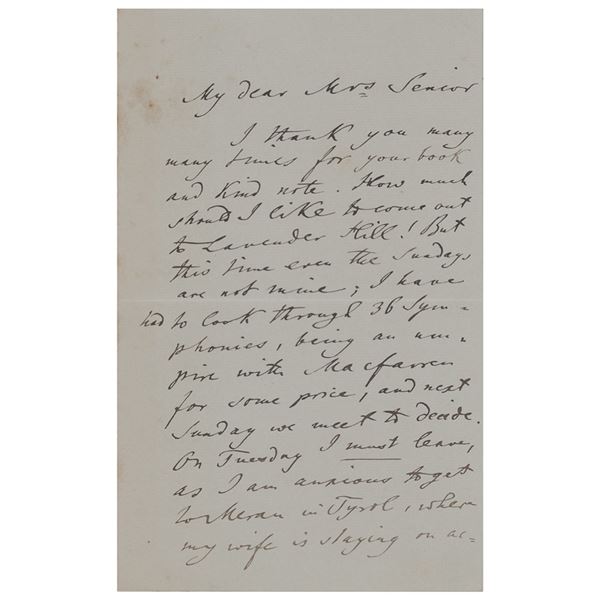 My dear Mrs Senior
I thank you many
many times for your book
and kind note. How much
should I like to come out
to Lavender Hill! But
this time even the Sundays
are not mine; I have
had to look through 36 Sym=
phonies, being an um=
pire with Macfarren
for some price, and next
Sunday we meet to decide.
On Tuesday I must leave,
as I am anxious to get
to Meran in Tyrol, where
my wife is staying on ac=